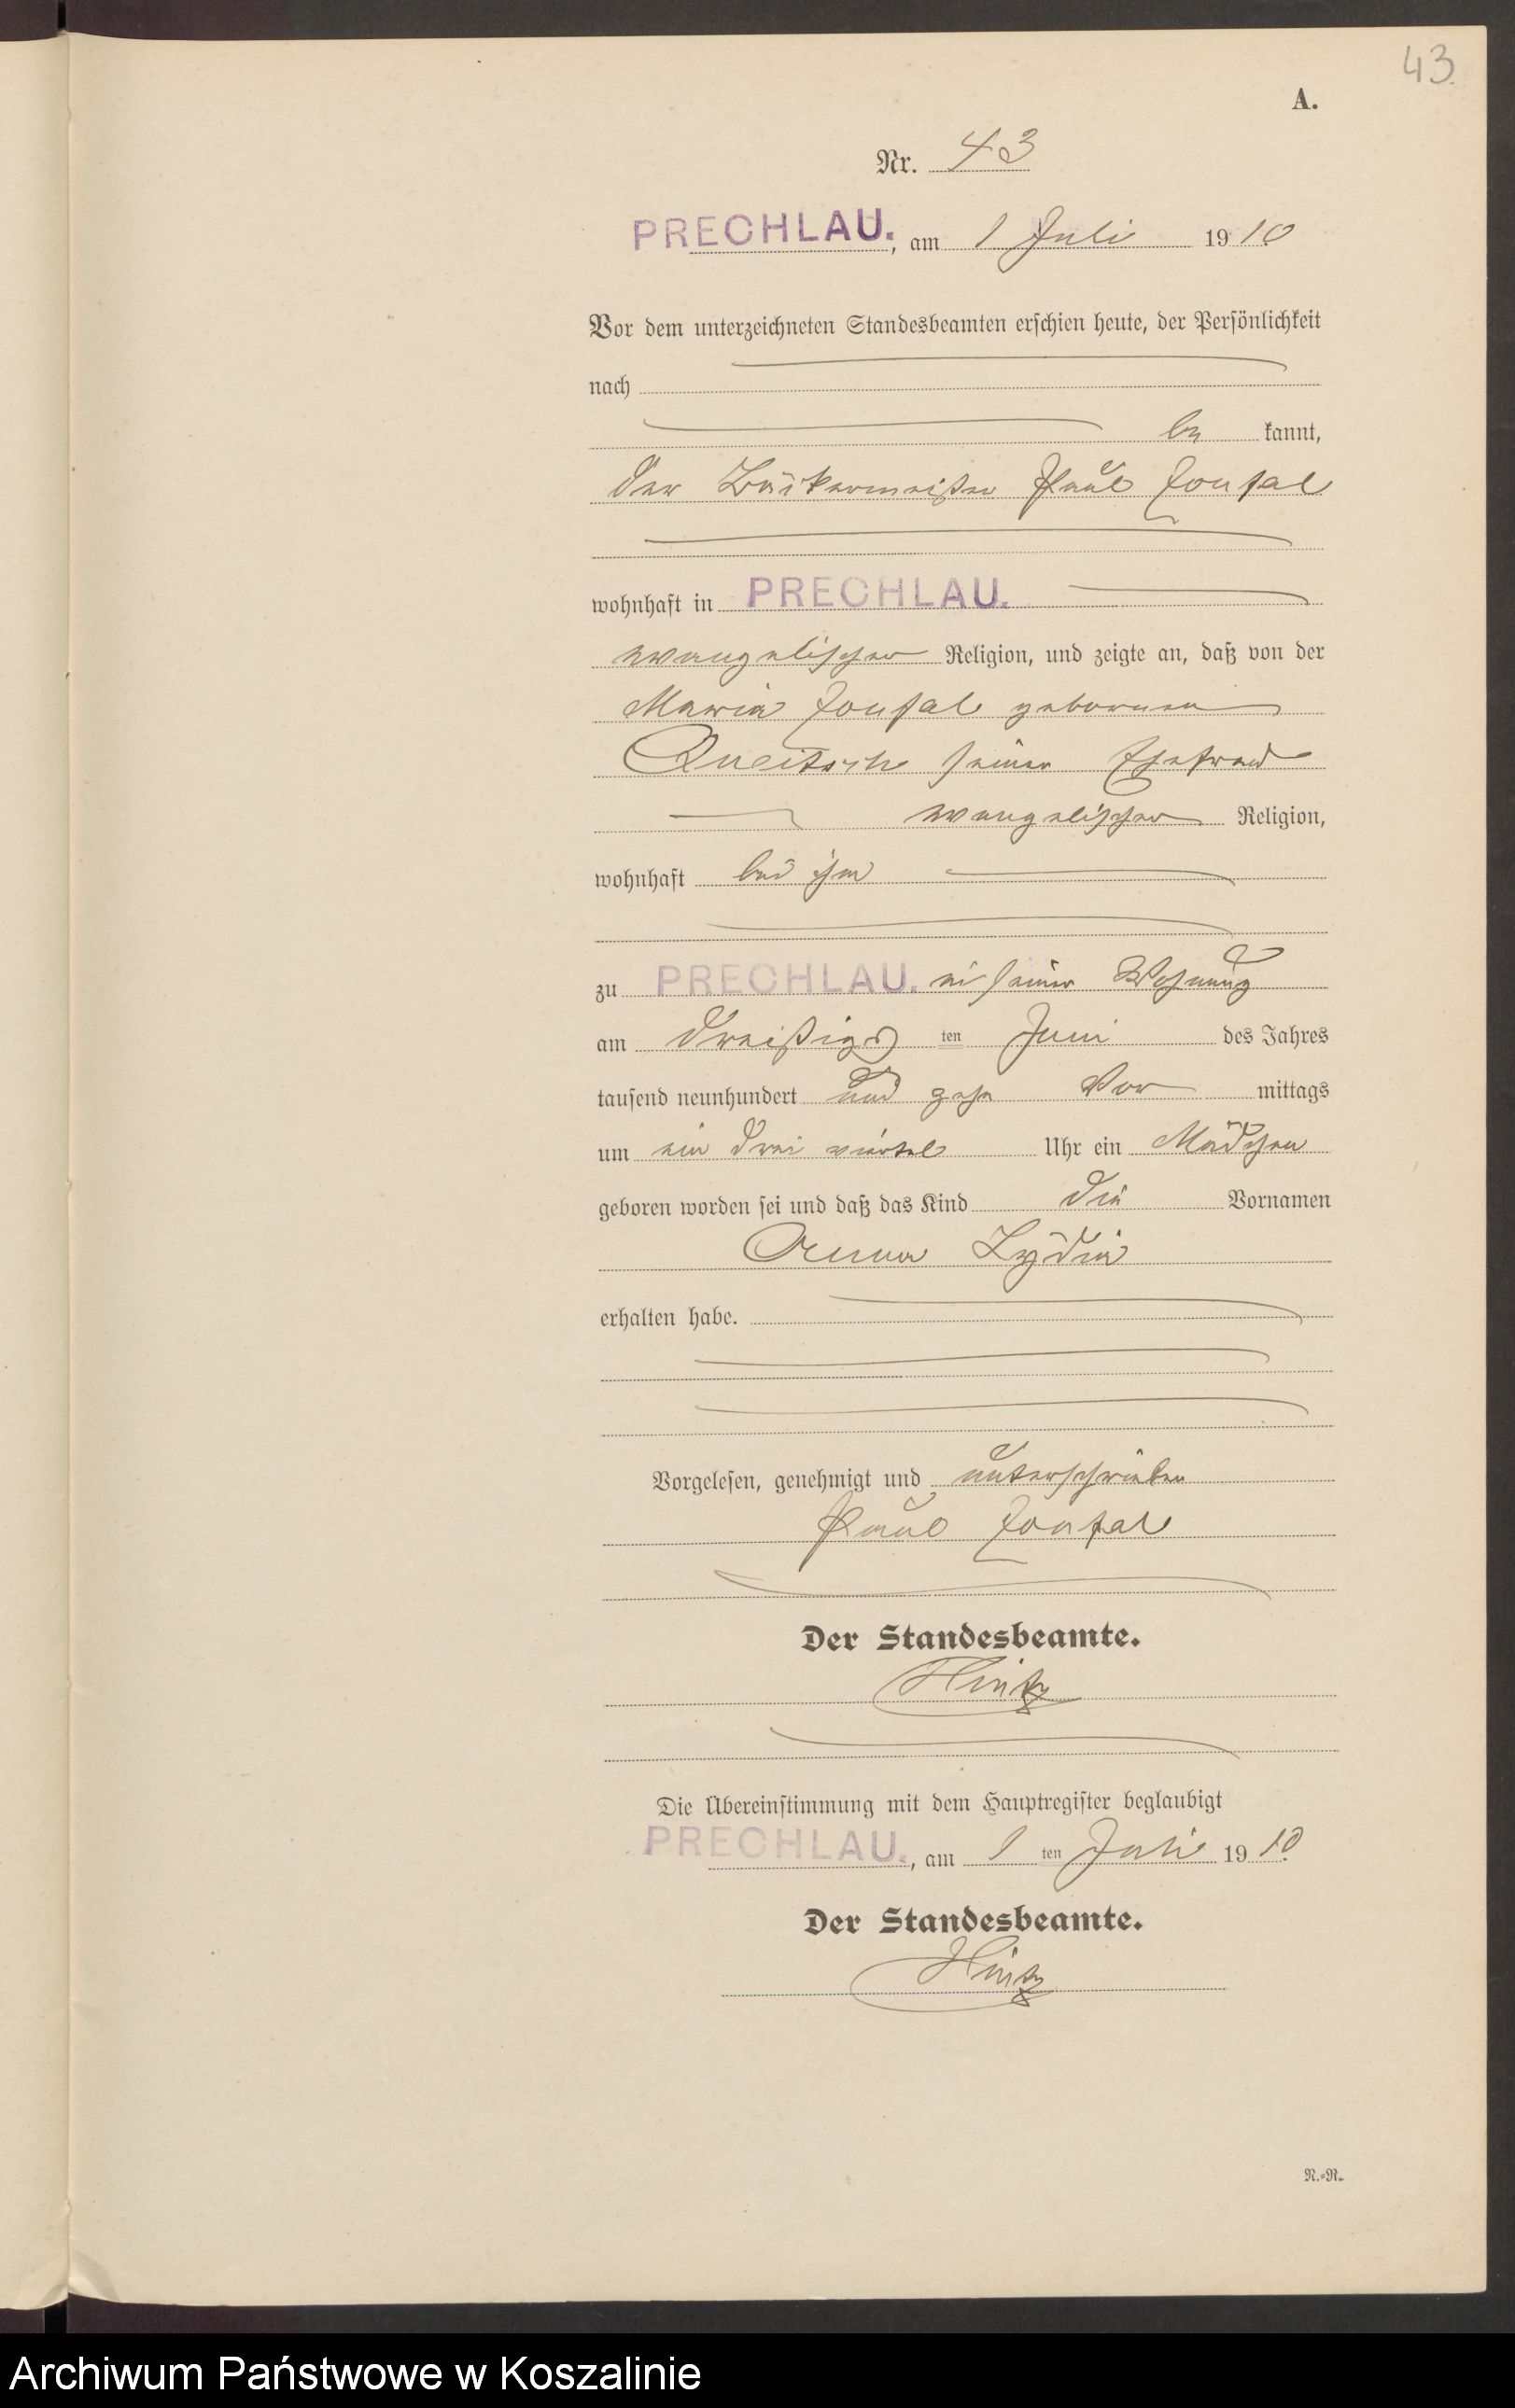 43.
A.
Nr. 43
PRECHLAU., am 1 Juli 1910
Vor dem unterzeichneten Standesbeamten erschien heute, der Persönlichkeit
nach
be kannt,
der Bäckermeister Paul
wohnhaft in PRECHLAU.
evangelischer Religion, und zeigte an, daß von der
Maria geborenen
Queitsch seiner Ehefrau
evangelischer Religion,
wohnhaft bei ihm
zu PRECHLAU. in seiner Wohnung
am dreißigsten Juni des Jahres
tausend neunhundert und zehn Vor mittags
um ein drei viertel Uhr ein Mädchen
geboren worden sei und daß das Kind die Vornamen
Anna Lydia
erhalten habe.
Vorgelesen, genehmigt und unterschrieben
Paul
Der Standesbeamte.
Hintz
Die Übereinstimmung mit dem Hauptregister beglaubigt
PRECHLAU., am 1 ten Juli 1910.
Der Standesbeamte.
Hintz
N.-R.
Archiwum Państwowe w Koszalinie